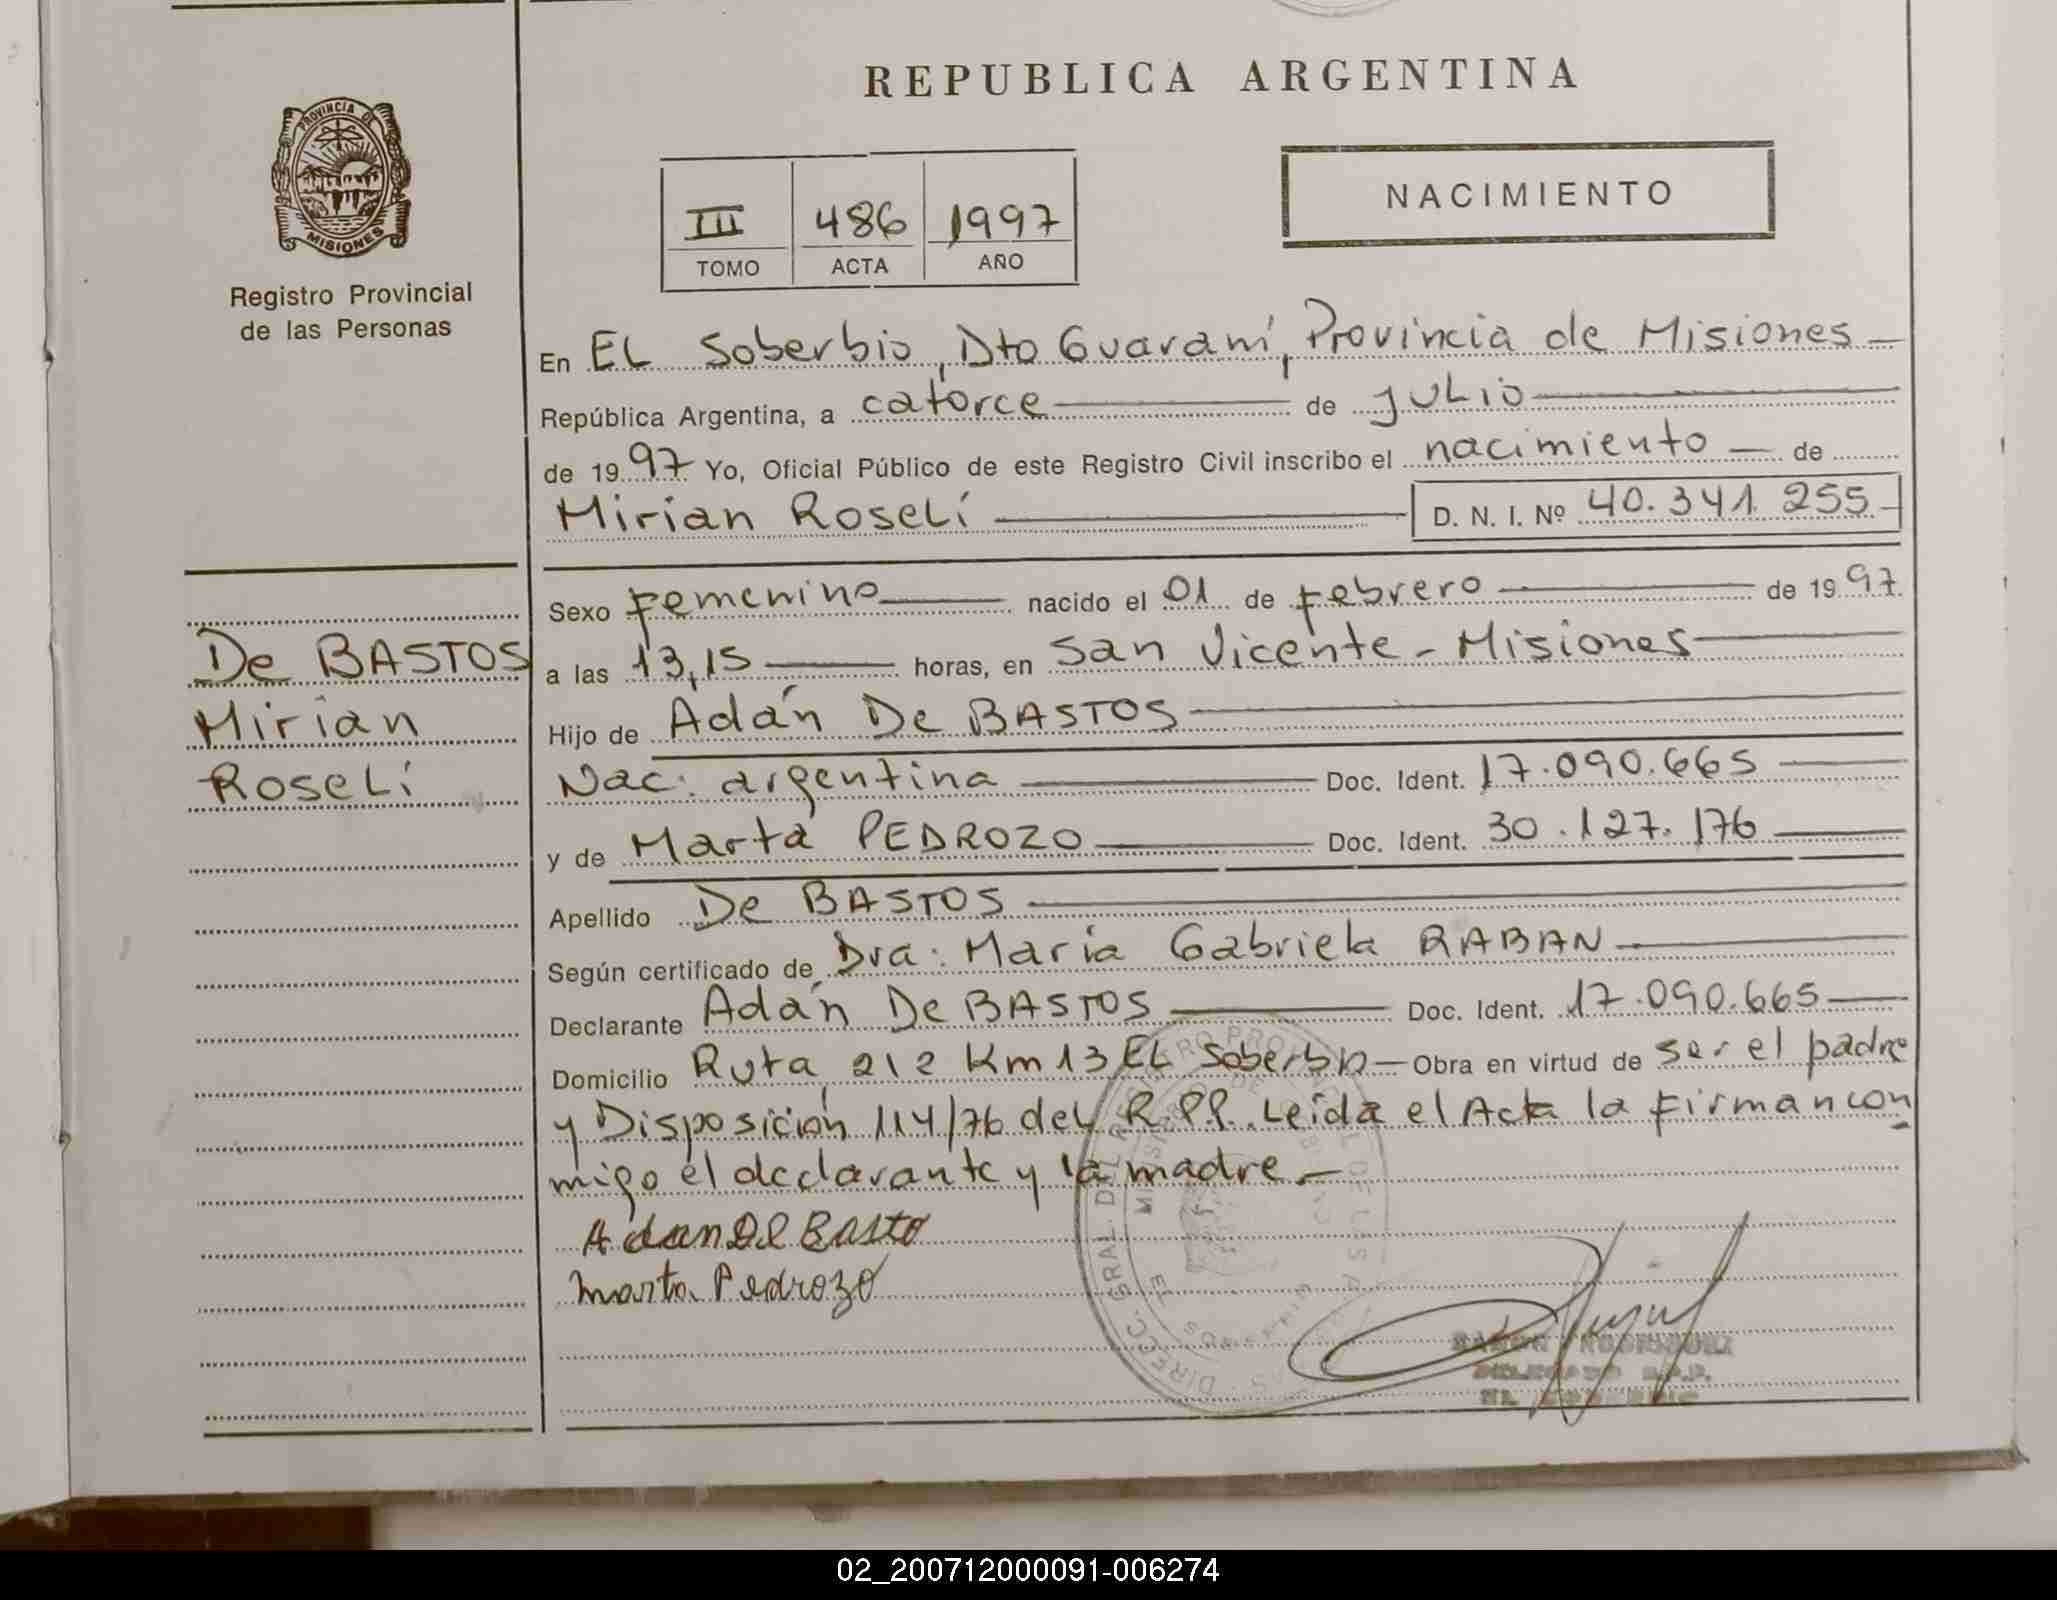 REPUBLICA ARGENTINA
PROVINCIA DE
MISIONES
Registro Provincial
de las Personas
III 486 1997
TOMO ACTA AÑO
NACIMIENTO
En EL Soberbio, Dto Guaraní, Provincia de Misiones
República Argentina, a catorce de JULIO
de 1997 Yo, Oficial Público de este Registro Civil inscribo el nacimiento de
Mirian Roselí D. N. I. Nº 40.341.255
De BASTOS
Mirian
Roselí
Sexo Femenino nacido el 01 de Febrero de 1997
a las 13,15 horas, en San Vicente - Misiones
Hijo de Adán De BASTOS
Nac: argentina Doc. Ident. 17.090.665
y de Marta PEDROZO Doc. Ident. 30.127.176
Apellido De BASTOS
Según certificado de Dra: María Gabriela RABAN
Declarante Adán De BASTOS Doc. Ident. 17.090.665
Domicilio Ruta 212 Km 13 EL Soberbio Obra en virtud de ser el padre
y Disposición 114/76 del R.P.P. Leída el Acta la Firman con
migo el declarante y la madre.-
Adan De Basto
Marta Pedrozo
RAMON RODRIGUEZ
DELEGADO R.P.P.
EL SOBERBIO
02_200712000091-006274